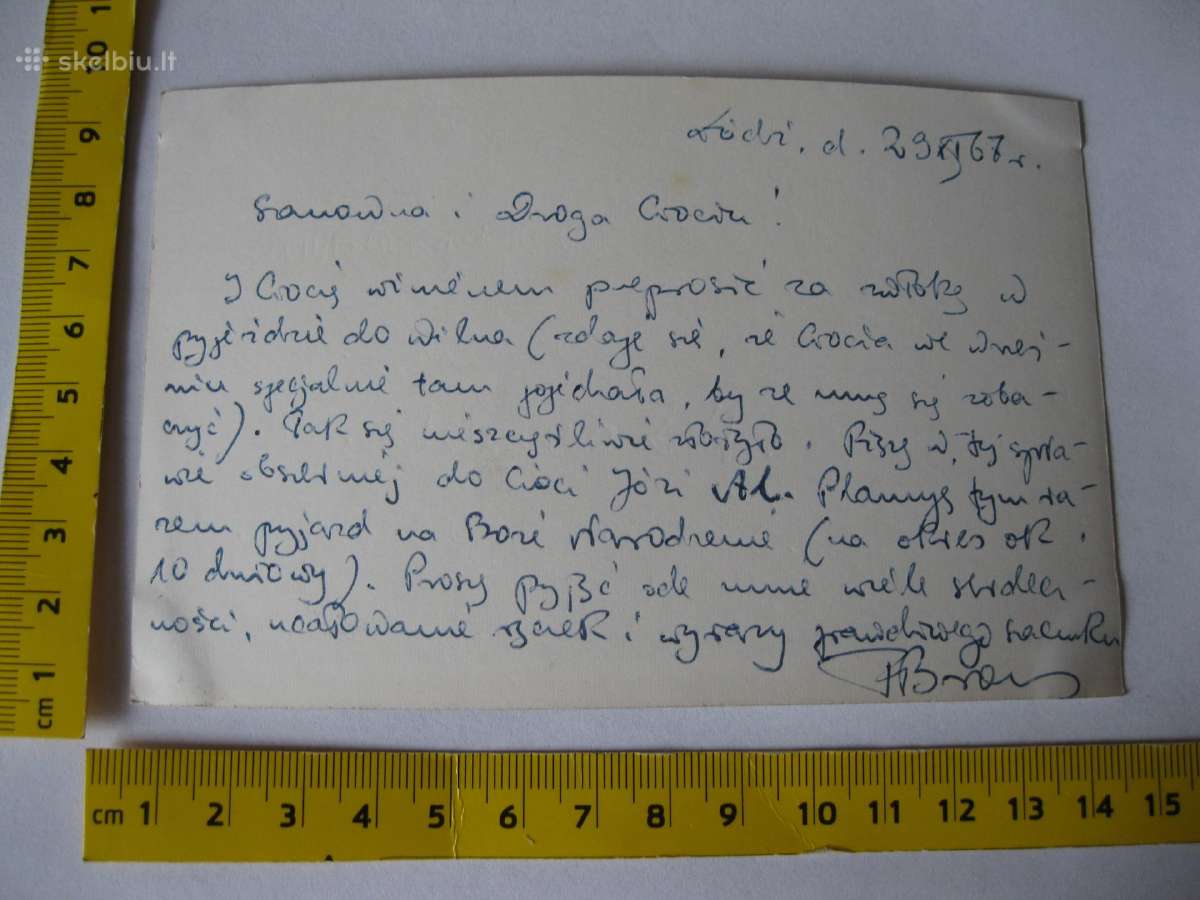 skelbiu.lt
Łódź, d. 29 XI 67 r.
Szanowna i Droga Ciociu!
I Ciocię winienem przeprosić za zwłokę w
przyjeździe do Wilna (zdaje się, że Ciocia we wrześ-
niu specjalnie tam jojechała, by ze mną się zoba-
czyć). Tak się nieszczęśliwie złożyło. Piszę w tej spra-
wie obszerniej do Cioci Józi Al. Planuję tym ra-
zem przyjazd na Boże Narodzenie (na okres ok.
10 dniowy). Proszę przyjąć ode mnie wiele serdecz-
ności, ucałowanie rączek i wyrazy prawdziwego szacunku
cm 1 2 3 4 5 6 7 8 9 10 1
cm 1 2 3 4 5 6 7 8 9 10 11 12 13 14 15